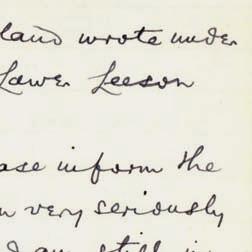 land wrote under
Lawe Leeson
ase inform the
n very seriously
I am still